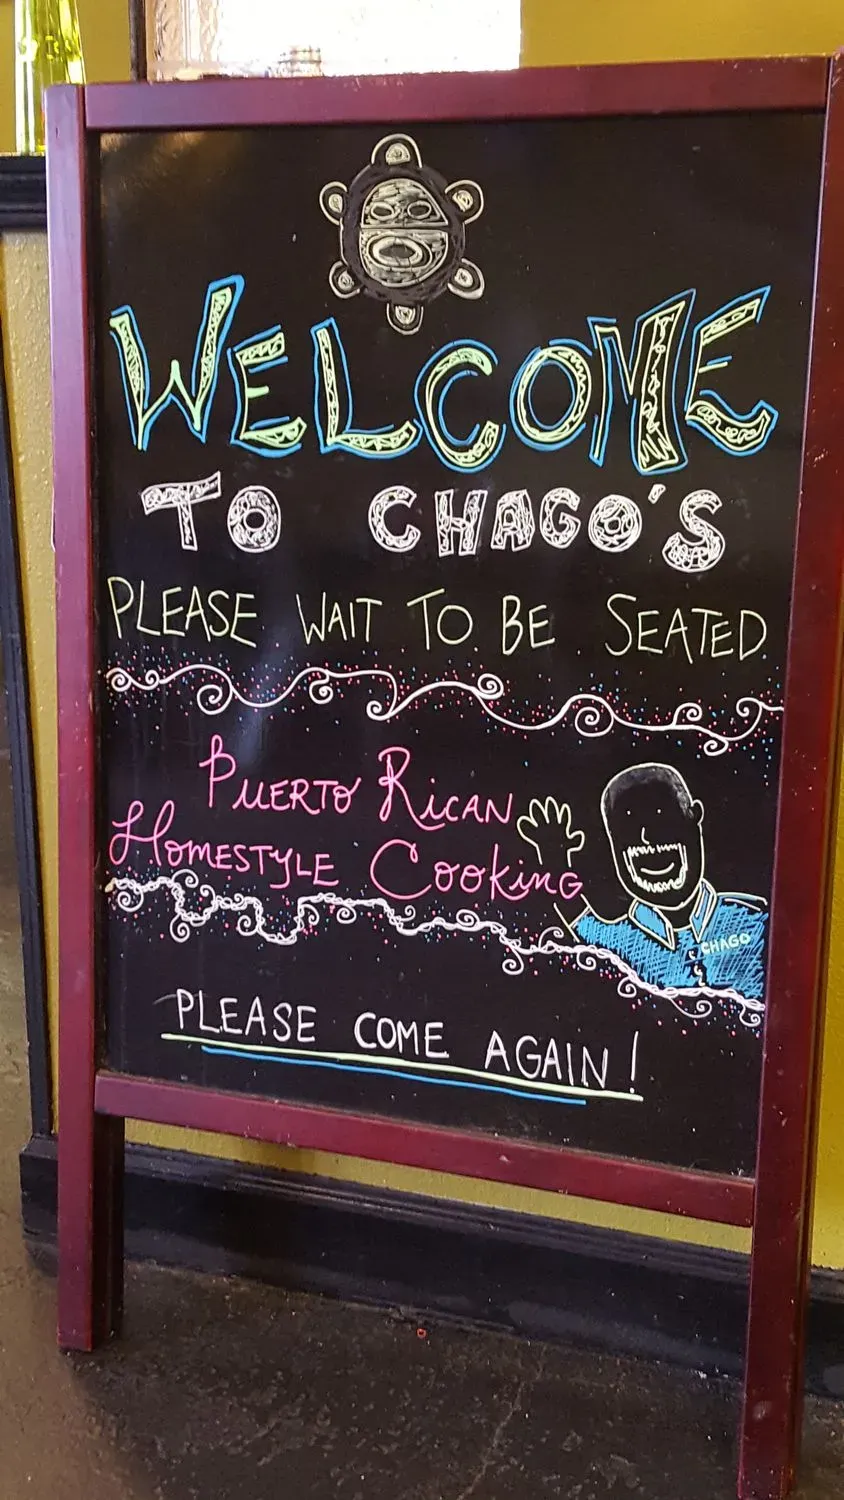 WELCOME
TO CHAGO'S
PLEASE WAIT TO BE SEATED
PUERTO RICAN
HOMESTYLE COOKING
CHAGO
PLEASE COME AGAIN!